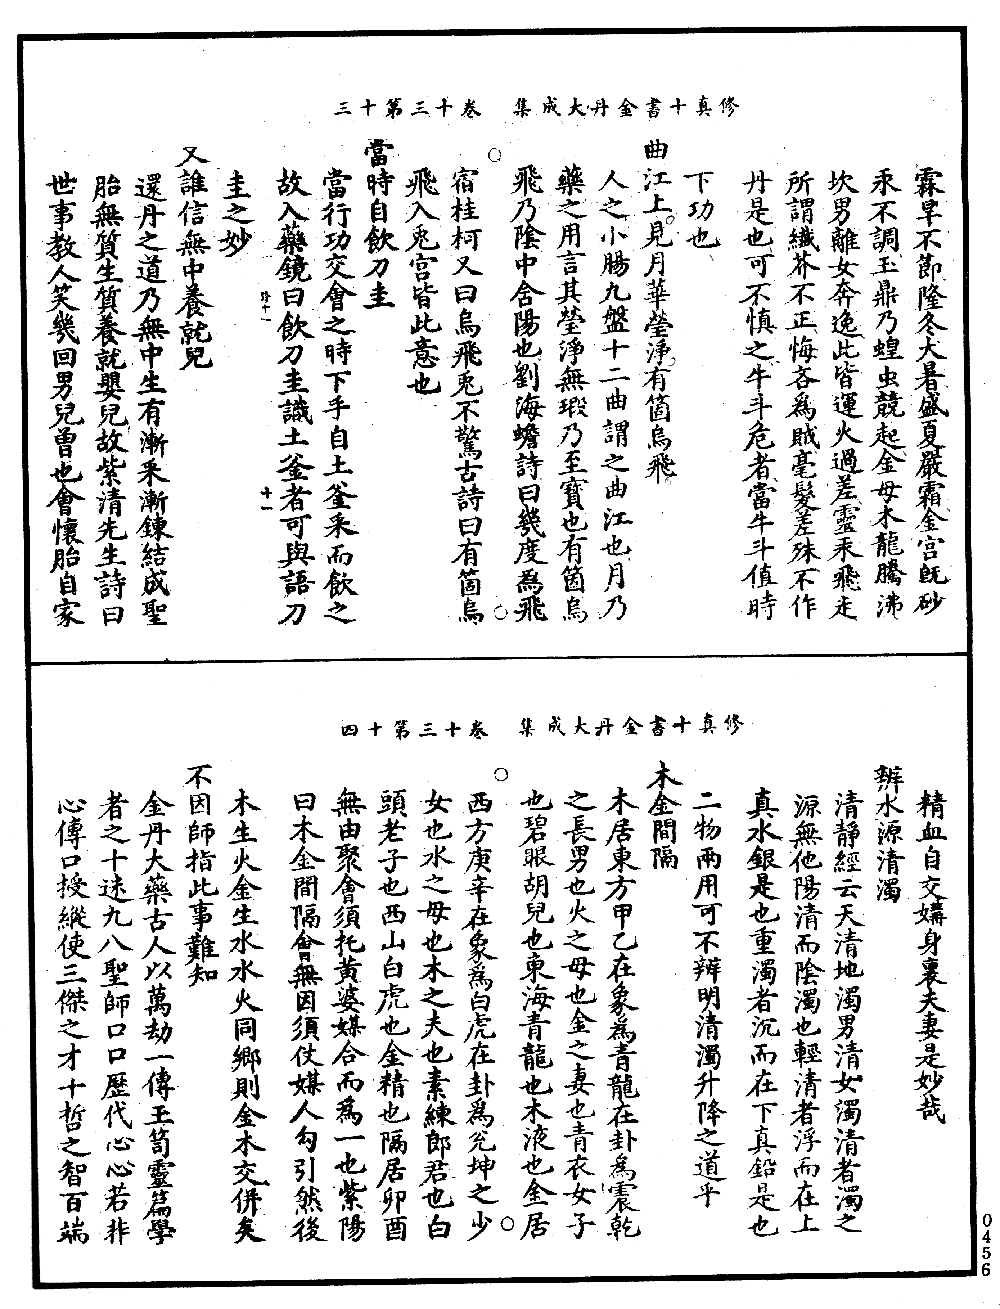 修真十書金丹大成集　卷十三第十三
霖旱不節隆冬大暑盛夏嚴霜金宮既砂
汞不調玉鼎乃蝗虫競起金母木龍騰沸
坎男離女奔逸此皆運火過差靈汞飛走
所謂纖芥不正悔吝爲賊毫髮差殊不作
丹是也可不慎之牛斗危者當牛斗值時
下功也
曲江上見月華瑩淨有箇烏飛
人之小腸九盤十二曲謂之曲江也月乃
藥之用言其瑩淨無瑕乃至寶也有箇烏
飛乃陰中含陽也劉海蟾詩曰幾度爲飛
宿桂柯又曰烏飛兎不驚古詩曰有箇烏
飛入兎宮皆此意也
當時自飲刀圭
當行功交會之時下手自土釜采而飲之
故入藥鏡曰飲刀圭識土釜者可與語刀
圭之妙
又誰信無中養就兒
還丹之道乃無中生有漸采漸鍊結成聖
胎無質生質養就嬰兒故紫清先生詩曰
世事教人笑幾回男兒曾也會懷胎自家
十一
修真十書金丹大成集　卷十三第十四
精血自交媾身裏夫妻是妙哉
辨水源清濁
清靜經云天清地濁男清女濁清者濁之
源無他陽清而陰濁也輕清者浮而在上
真水銀是也重濁者沉而在下真鉛是也
二物兩用可不辨明清濁升降之道乎
木金間隔
木居東方甲乙在象爲青龍在卦爲震乾
之長男也火之母也金之妻也青衣女子
也碧眼胡兒也東海青龍也木液也金居
西方庚辛在象爲白虎在卦爲兌坤之少
女也水之母也木之夫也素練郎君也白
頭老子也西山白虎也金精也隔居卯酉
無由聚會須托黃婆媒合而爲一也紫陽
曰木金間隔會無因須仗媒人勾引然後
木生火金生水水火同鄉則金木交併矣
不因師指此事難知
金丹大藥古人以萬劫一傳玉笥靈篇學
者之十迷九八聖師口口歷代心心若非
心傳口授縱使三傑之才十哲之智百端
0456